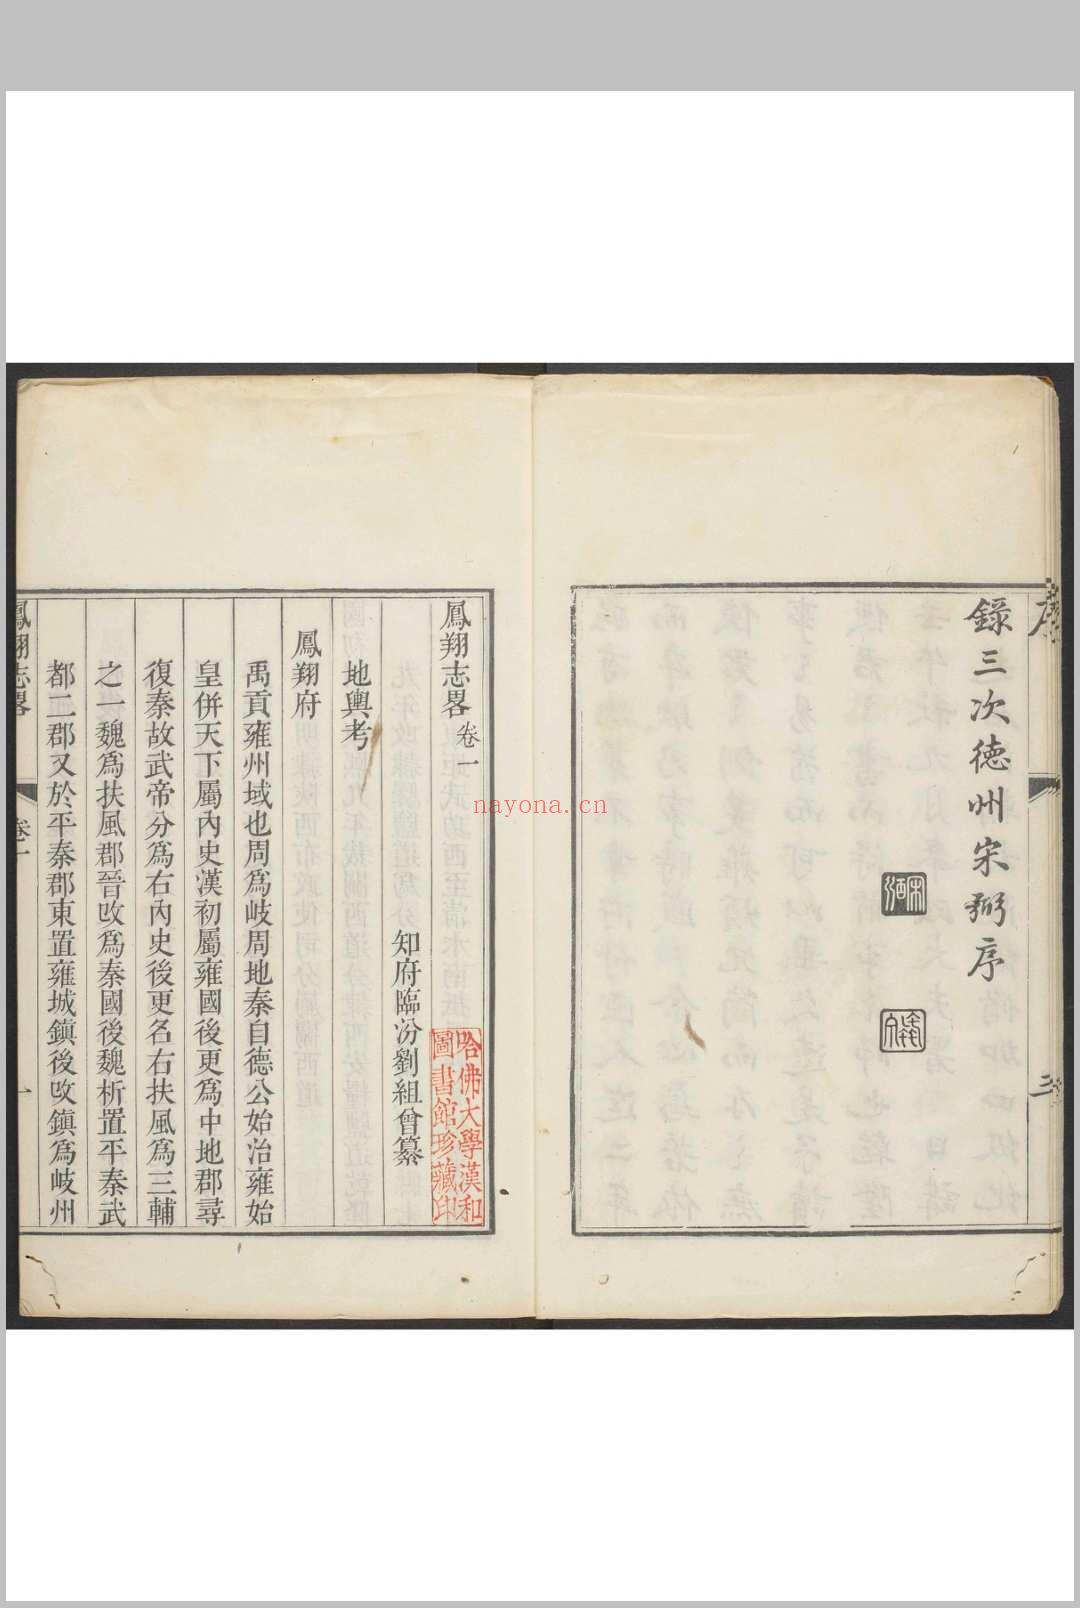 序
三
錄三次德州宋弼序
鳳翔志畧卷一
知府臨汾劉組曾纂
哈佛大學漢和
圖書館珍藏印
地輿考
鳳翔府
禹貢雍州域也周爲岐周地秦自德公始治雍始
皇併天下屬內史漢初屬雍國後更爲中地郡尋
復秦故武帝分爲右內史後更名右扶風爲三輔
之一魏爲扶風郡晉攺爲秦國後魏析置平秦武
都二郡又於平秦郡東置雍城鎮後攺鎮爲岐州
鳳翔志畧
卷一
一
nayona.cn